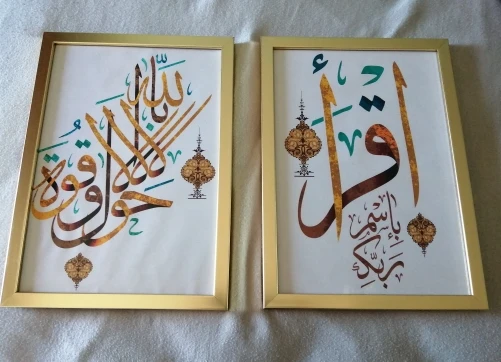 اقرأ
باسم
ربك
لا حول ولا قوة إلا بالله